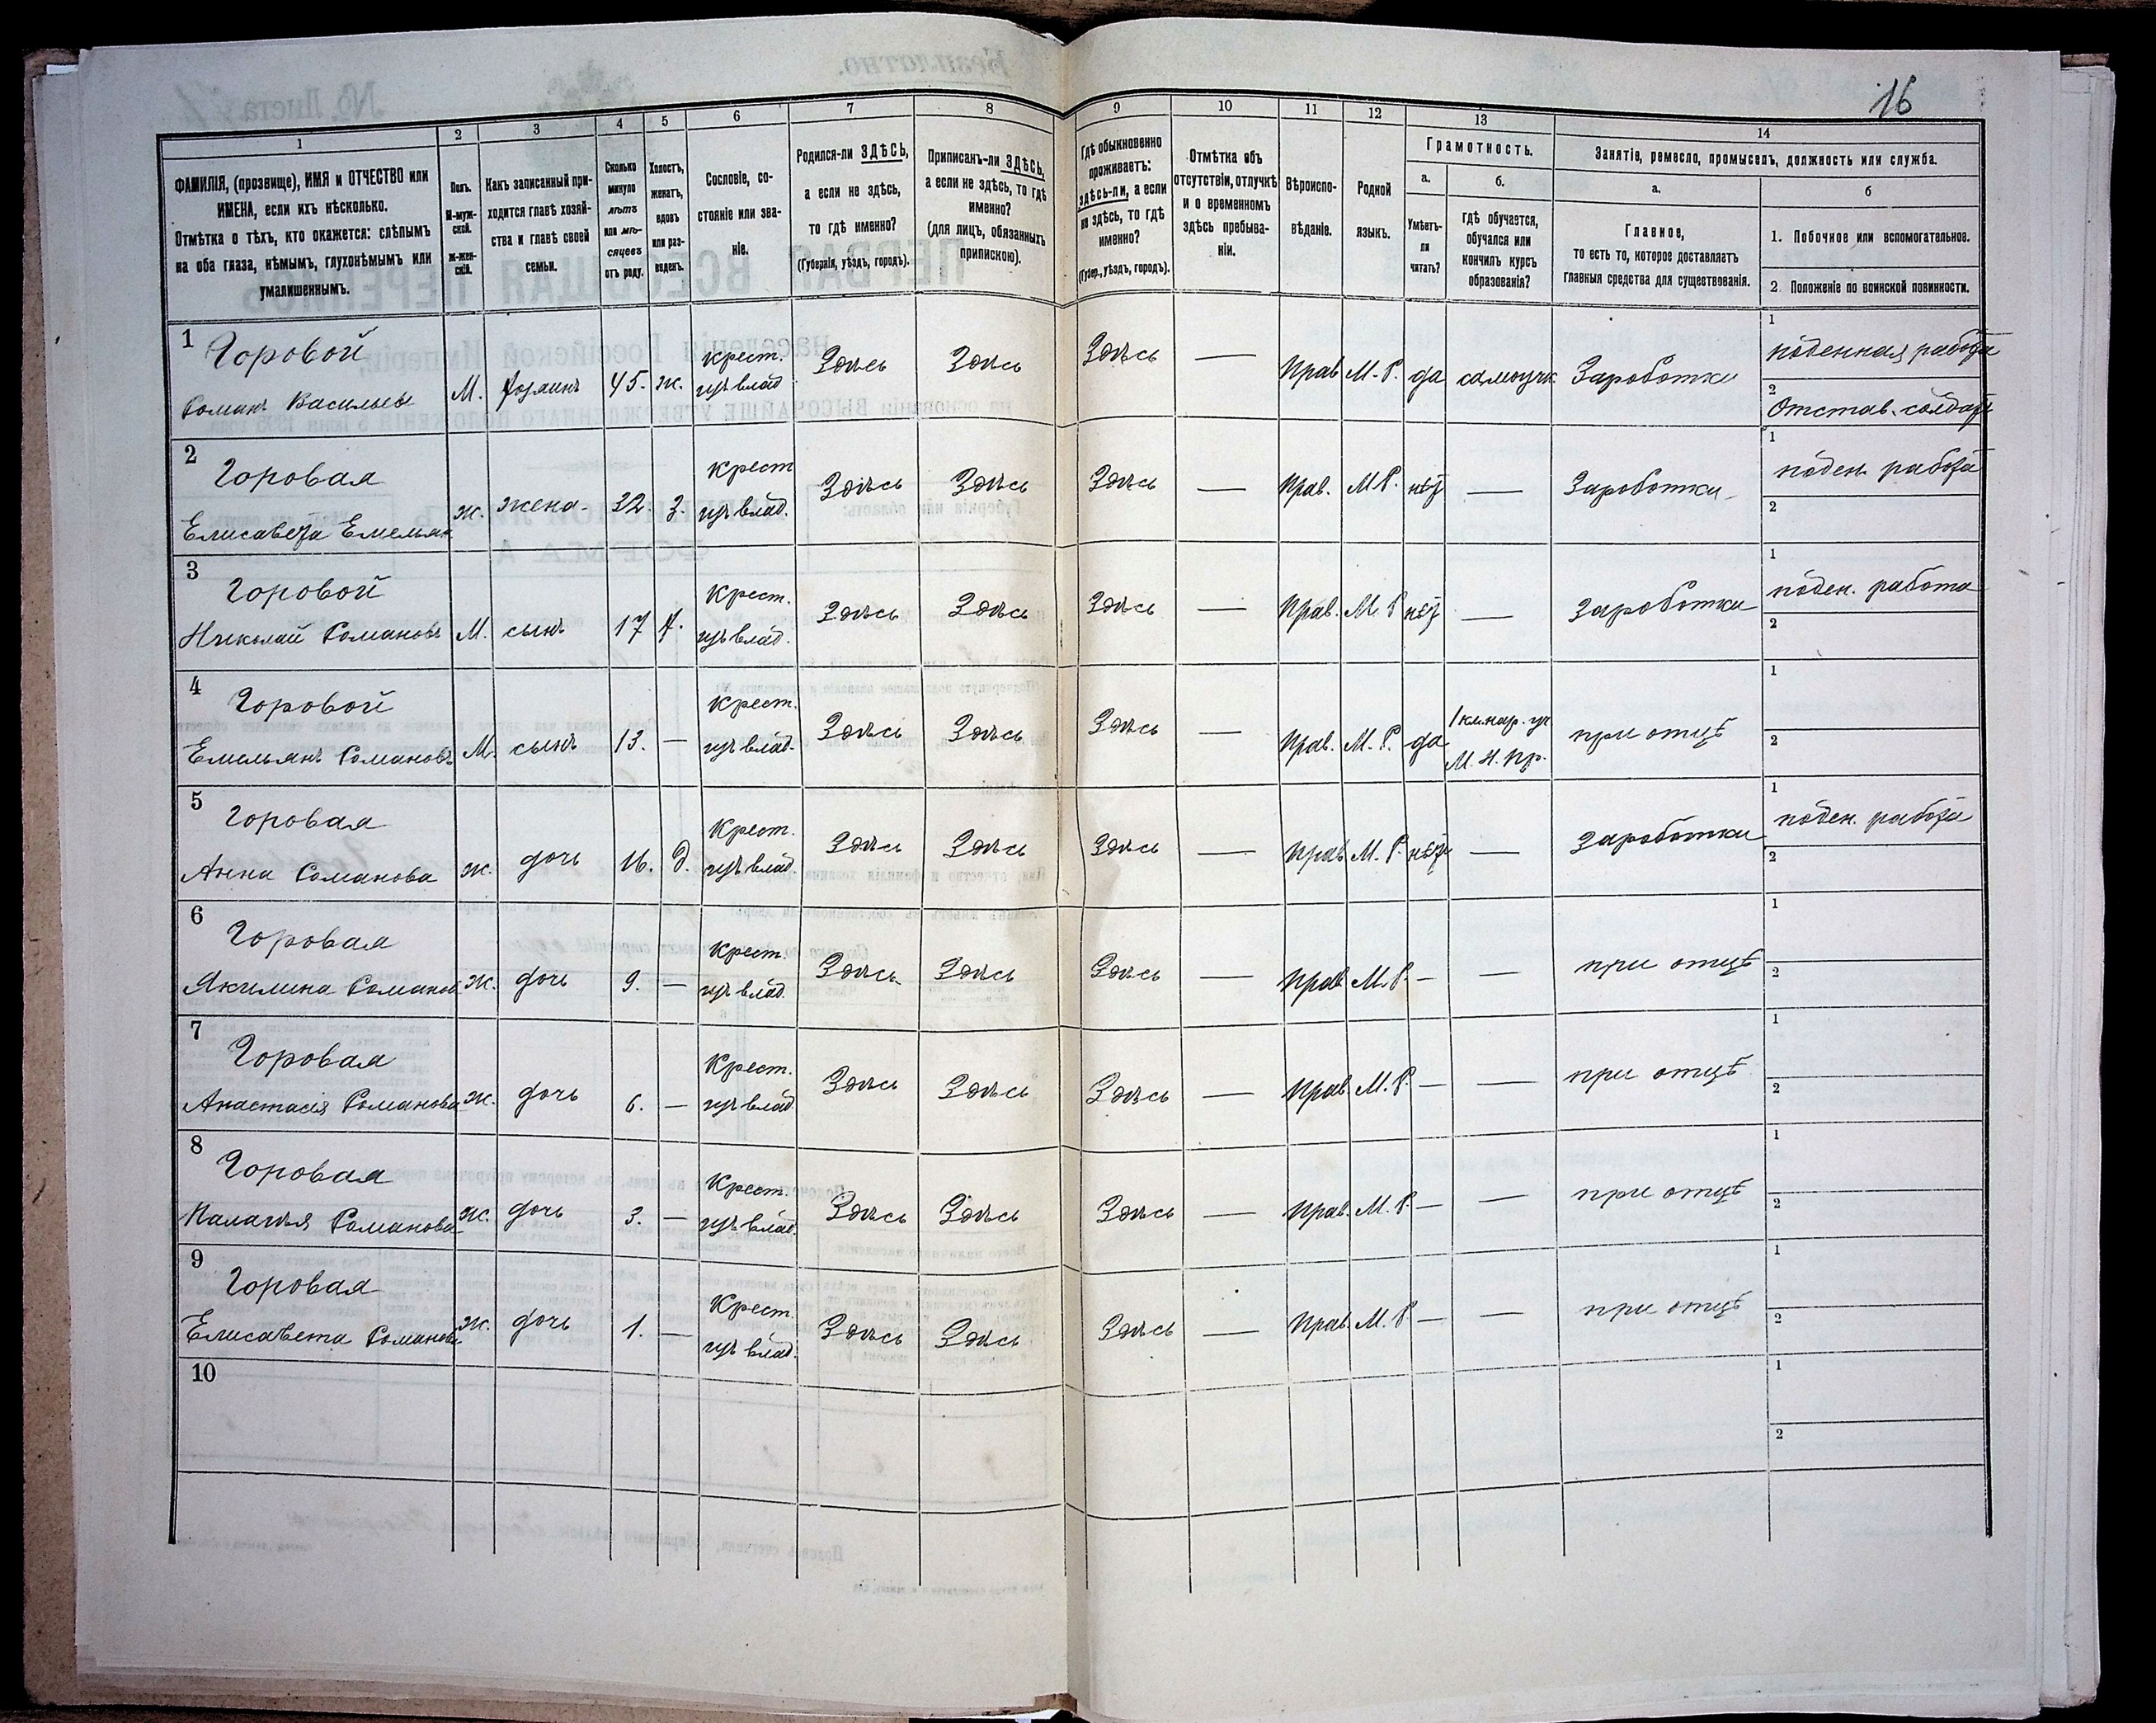 16
1 2 3 4 5 6 7 8 9 10 11 12 13 14
ФАМИЛІЯ, (прозвище), ИМЯ и ОТЧЕСТВО или
ИМЕНА, если ихъ нѣсколько.
Отмѣтка о тѣхъ, кто окажется: слѣпымъ
на оба глаза, нѣмымъ, глухонѣмымъ или
умалишеннымъ.
Полъ.
М-муж-
ской.
Ж-жен-
скій.
Какъ записанный при-
ходится главѣ хозяй-
ства и главѣ своей
семьи.
Сколько
минуло
лѣтъ
или мѣ-
сяцевъ
отъ роду.
Холостъ,
женатъ,
вдовъ
или раз-
веденъ.
Сословіе, со-
стояніе или зва-
ніе.
Родился-ли ЗДѢСЬ,
а если не здѣсь,
то гдѣ именно?
(Губернія, уѣздъ, городъ).
Приписанъ-ли ЗДѢСЬ,
а если не здѣсь, то гдѣ
именно?
(для лицъ, обязанныхъ
припискою).
Гдѣ обыкновенно
проживаетъ:
здѣсь-ли, а если
не здѣсь, то гдѣ
именно?
(Губер., уѣздъ, городъ).
Отмѣтка объ
отсутствіи, отлучкѣ
и о временномъ
здѣсь пребыва-
ніи.
Вѣроиспо-
вѣданіе.
Родной
языкъ.
Грамотность.
а.
Умѣетъ-
ли
читать?
б.
гдѣ обучается,
обучался или
кончилъ курсъ
образованія?
Занятіе, ремесло, промыселъ, должность или служба.
а.
Главное,
то есть то, которое доставляетъ
главныя средства для существованія.
б
1. Побочное или вспомогательное.
2 Положеніе по воинской повинности.
1 Горовой
Романъ Васильевъ М. хозяинъ 45. ж. крест. Здѣсь Здѣсь Здѣсь — Прав М.-Р. да самоучк Заработки 1 поденная работа
2 Отстав. солдатъ
2 Горовая
Елисавета Емельян ж. жена 32. З. крест Здѣсь Здѣсь Здѣсь — Прав. М.Р. нѣт — Заработки 1 поден. работа
2
3 Горовой
Николай Романовъ М. сынъ 17 Х. Крест. Здѣсь Здѣсь Здѣсь — Прав. М. Р нѣт — Заработки 1 поден. работа
2
4 Горовой
Емельянъ Романовъ М. сынъ 13. — Крест. Здѣсь Здѣсь Здѣсь — Прав. М. Р. да 1 кл. нар. уч при отцѣ 1
М. Н. Пр. 2
5 Горовая
Анна Романова ж. дочь 16. д. Крест. Здѣсь Здѣсь Здѣсь — Прав М. Р. нѣт — Заработки 1 поден. работа
2
6 Горовая
Акилина Романов ж. дочь 9. — Крест. Здѣсь Здѣсь Здѣсь — Прав М.Р. — — при отцѣ 1
2
7 Горовая
Анастасія Романова ж. дочь 6. — Крест. Здѣсь Здѣсь Здѣсь — Прав. М. Р. — — при отцѣ 1
2
8 Горовая
Палагія Романова ж. дочь 3. — Крест. Здѣсь Здѣсь Здѣсь — Прав. М. Р. — — при отцѣ 1
2
9 Горовая
Елисавета Романова ж. дочь 1. — Крест. Здѣсь Здѣсь Здѣсь — Прав. М. Р — — при отцѣ 1
2
10 1
2